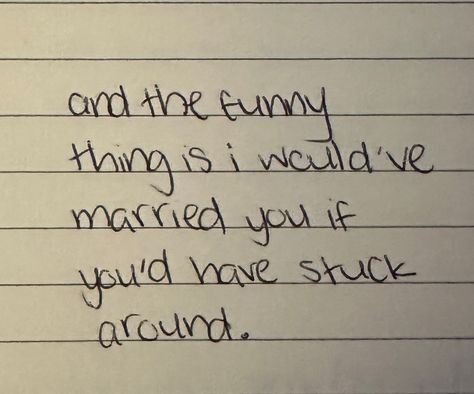 and the funny
thing is i would've
married you if
you'd have stuck
around.